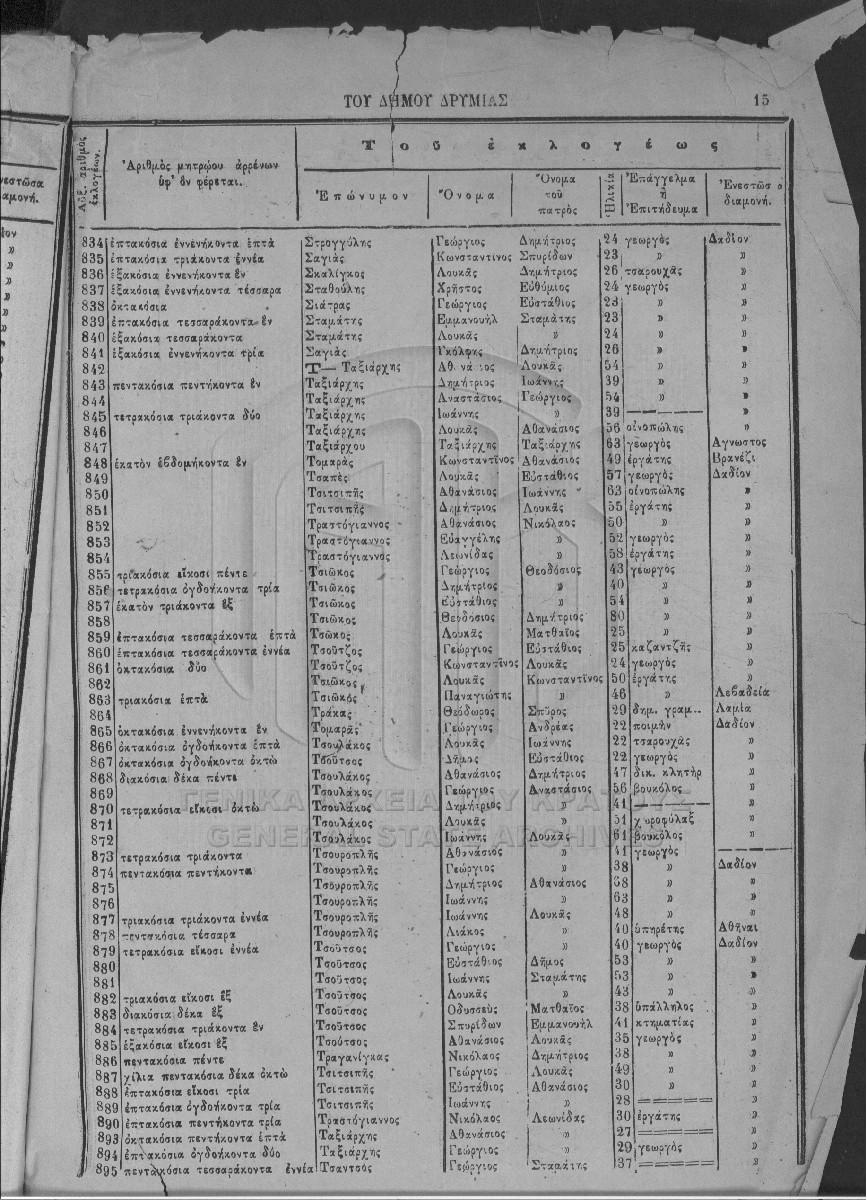 ΤΟΥ ΔΗΜΟΥ ΔΡΥΜΙΑΣ 15
Αὔξ. ἀριθμὸς ἐκλογέων. Ἀριθμὸς μητρῴου ἀρρένων ὑφ' ὃν φέρεται. Τοῦ ἐκλογέως
Ἐπώνυμον Ὄνομα Ὄνομα τοῦ πατρὸς Ἡλικία Ἐπάγγελμα ἢ Ἐπιτήδευμα Ἐνεστῶσα διαμονή.
834 ἑπτακόσια ἐννενήκοντα ἑπτὰ Στρογγύλης Γεώργιος Δημήτριος 24 γεωργὸς Δαδίον
835 ἑπτακόσια τριάκοντα ἐννέα Σαγιὰς Κωνσταντίνος Σπυρίδων 23 » »
836 ἑξακόσια ἐννενήκοντα ἓν Σκαλίγκος Λουκᾶς Δημήτριος 26 τσαρουχᾶς »
837 ἑξακόσια ἐννενήκοντα τέσσαρα Σταθούλης Χρῆστος Εὐθύμιος 24 γεωργὸς »
838 ὀκτακόσια Σιάτρας Γεώργιος Εὐστάθιος 23 » »
839 ἑπτακόσια τεσσαράκοντα ἓν Σταμάτης Ἐμμανουὴλ Σταμάτης 23 » »
840 ἑξακόσια τεσσαράκοντα Σταμάτης Λουκᾶς » 24 » »
841 ἑξακόσια ἐννενήκοντα τρία Σαγιὰς Γκόλφης Δημήτριος 26 » »
842 Τ— Ταξιάρχης Ἀθανάσιος Λουκᾶς 54 » »
843 πεντακόσια πεντήκοντα ἓν Ταξιάρχης Δημήτριος Ἰωάννης 39 » »
844 Ταξιάρχης Ἀναστάσιος Γεώργιος 54 » »
845 τετρακόσια τριάκοντα δύο Ταξιάρχης Ἰωάννης » 39 — »
846 Ταξιάρχης Λουκᾶς Ἀθανάσιος 56 οἰνοπώλης »
847 Ταξιάρχου Ταξιάρχης Ταξιάρχης 63 γεωργὸς Ἄγνωστος
848 ἑκατὸν ἑβδομήκοντα ἓν Τομαρᾶς Κωνσταντῖνος Ἀθανάσιος 49 ἐργάτης Βρανέζι
849 Τσαπὲς Λουκᾶς Εὐστάθιος 57 γεωργὸς Δαδίον
850 Τσιτσιπῆς Ἀθανάσιος Ἰωάννης 63 οἰνοπώλης »
851 Τσιτσιπῆς Δημήτριος Λουκᾶς 55 ἐργάτης »
852 Τραστόγιαννος Ἀθανάσιος Νικόλαος 50 » »
853 Τραστόγιαννος Εὐαγγέλης » 52 γεωργὸς »
854 Τραστόγιαννος Λεωνίδας » 58 ἐργάτης »
855 τριακόσια εἴκοσι πέντε Τσιῶκος Γεώργιος Θεοδόσιος 43 γεωργὸς »
856 τετρακόσια ὀγδοήκοντα τρία Τσιῶκος Δημήτριος » 40 » »
857 ἑκατὸν τριάκοντα ἓξ Τσιῶκος Εὐστάθιος » 54 » »
858 Τσιῶκος Θεοδόσιος Δημήτριος 80 » »
859 ἑπτακόσια τεσσαράκοντα ἑπτὰ Τσῶκος Λουκᾶς Ματθαῖος 25 » »
860 ἑπτακόσια τεσσαράκοντα ἐννέα Τσοῦτζος Γεώργιος Εὐστάθιος 25 καζαντζῆς »
861 ὀκτακόσια δύο Τσοῦτζος Κωνσταντῖνος Λουκᾶς 24 γεωργὸς »
862 Τσιῶκος Λουκᾶς Κωνσταντῖνος 50 ἐργάτης »
863 τριακόσια ἑπτὰ Τσιῶκος Παναγιώτης » 46 » Λεβαδεία
864 Τράκας Θεόδωρος Σπύρος 29 δημ. γραμ.. Λαμία
865 ὀκτακόσια ἐννενήκοντα ἓν Τομαρᾶς Γεώργιος Ἀνδρέας 22 ποιμὴν Δαδίον
866 ὀκτακόσια ὀγδοήκοντα ἑπτὰ Τσουλάκος Λουκᾶς Ἰωάννης 22 τσαρουχᾶς »
867 ὀκτακόσια ὀγδοήκοντα ὀκτὼ Τσοῦτσος Δῆμος Εὐστάθιος 22 γεωργὸς »
868 διακόσια δέκα πέντε Τσουλάκος Ἀθανάσιος Δημήτριος 47 δικ. κλητὴρ »
869 Τσουλάκος Γεώργιος Ἀναστάσιος 56 βουκόλος »
870 τετρακόσια εἴκοσι ὀκτὼ Τσουλάκος Δημήτριος » 41 — »
871 Τσουλάκος Λουκᾶς » 51 χωροφύλαξ »
872 Τσουλάκος Ἰωάννης Λουκᾶς 61 βουκόλος »
873 τετρακόσια τριάκοντα Τσουροπλῆς Ἀθανάσιος » 41 γεωργὸς —
874 πεντακόσια πεντήκοντα Τσουροπλῆς Γεώργιος » 38 » Δαδίον
875 Τσουροπλῆς Δημήτριος Ἀθανάσιος 68 » »
876 Τσουροπλῆς Ἰωάννης » 63 » »
877 τριακόσια τριάκοντα ἐννέα Τσουροπλῆς Ἰωάννης Λουκᾶς 48 » »
878 πεντακόσια τέσσαρα Τσουροπλῆς Λιάκος » 40 ὑπηρέτης Ἀθῆναι
879 τετρακόσια εἴκοσι ἐννέα Τσοῦτσος Γεώργιος » 40 γεωργὸς Δαδίον
880 Τσοῦτσος Εὐστάθιος Δῆμος 53 » »
881 Τσοῦτσος Ἰωάννης Σταμάτης 53 » »
882 τριακόσια εἴκοσι ἓξ Τσοῦτσος Λουκᾶς » 43 » »
883 διακόσια δέκα ἓξ Τσοῦτσος Ὀδυσσεὺς Ματθαῖος 38 ὑπάλληλος »
884 τετρακόσια τριάκοντα ἓν Τσοῦτσος Σπυρίδων Ἐμμανουὴλ 41 κτηματίας »
885 ἑξακόσια εἴκοσι ἓξ Τσοῦτσος Ἀθανάσιος Λουκᾶς 35 γεωργὸς »
886 πεντακόσια πέντε Τραγανίγκας Νικόλαος Δημήτριος 38 » »
887 χίλια πεντακόσια δέκα ὀκτὼ Τσιτσιπῆς Γεώργιος Λουκᾶς 49 » »
888 ἑπτακόσια εἴκοσι τρία Τσιτσιπῆς Εὐστάθιος Ἀθανάσιος 30 » »
889 ἑπτακόσια ὀγδοήκοντα τρία Τσιτσιπῆς Ἰωάννης » 28 — »
890 ἑπτακόσια πεντήκοντα τρία Τραστόγιαννος Νικόλαος Λεωνίδας 30 ἐργάτης »
893 ὀκτακόσια πεντήκοντα ἑπτὰ Ταξιάρχης Ἀθανάσιος » 27 — »
894 ἑπτακόσια ὀγδοήκοντα δύο Ταξιάρχης Γεώργιος » 29 γεωργὸς »
895 πεντακόσια τεσσαράκοντα ἐννέα Τσαντσὸς Γεώργιος Σταμάτης 37 — »
ΓΕΝΙΚΑ ΑΡΧΕΙΑ ΤΟΥ ΚΡΑΤΟΥΣ
GENERAL STATE ARCHIVES